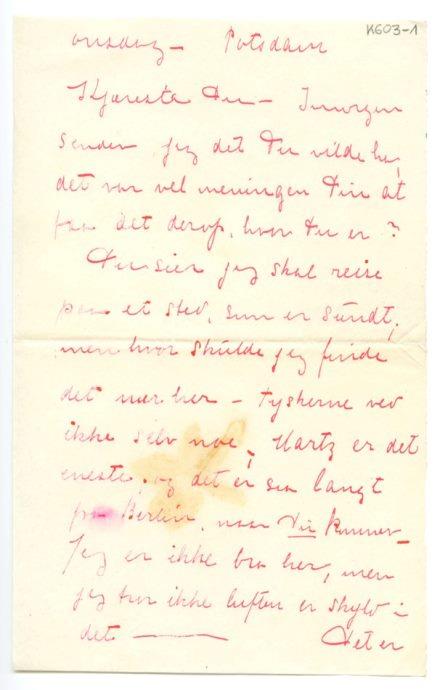 K603-1
onsdag – Potsdam
Kjæreste Du – Imorgen
sender jeg det Du vilde ha,
det var vel meningen Din at
faa det derop, hvor Du er?
Du sier jeg skal reise
paa et sted, som er sundt,
men hvor skulde jeg finde
det nær her – Tyskerne ved
ikke selv noe, Hartz er det
eneste, og det er saa langt
fra Berlin, naar Du kommer –
Jeg er ikke bra her, men
jeg tror ikke luften er skyld i
det — Det er